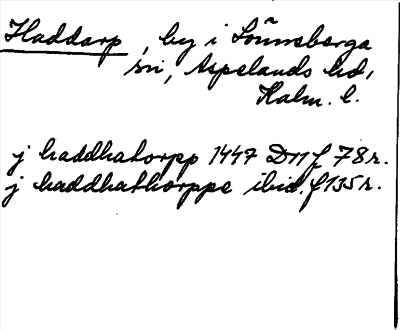 Haddarp, by i Lönneberga
sn, Aspelands hd,
Kalm. l.
j haddhatorpp 1447 D11 f 78r.
j haddhathorppe ibid. f 135r.